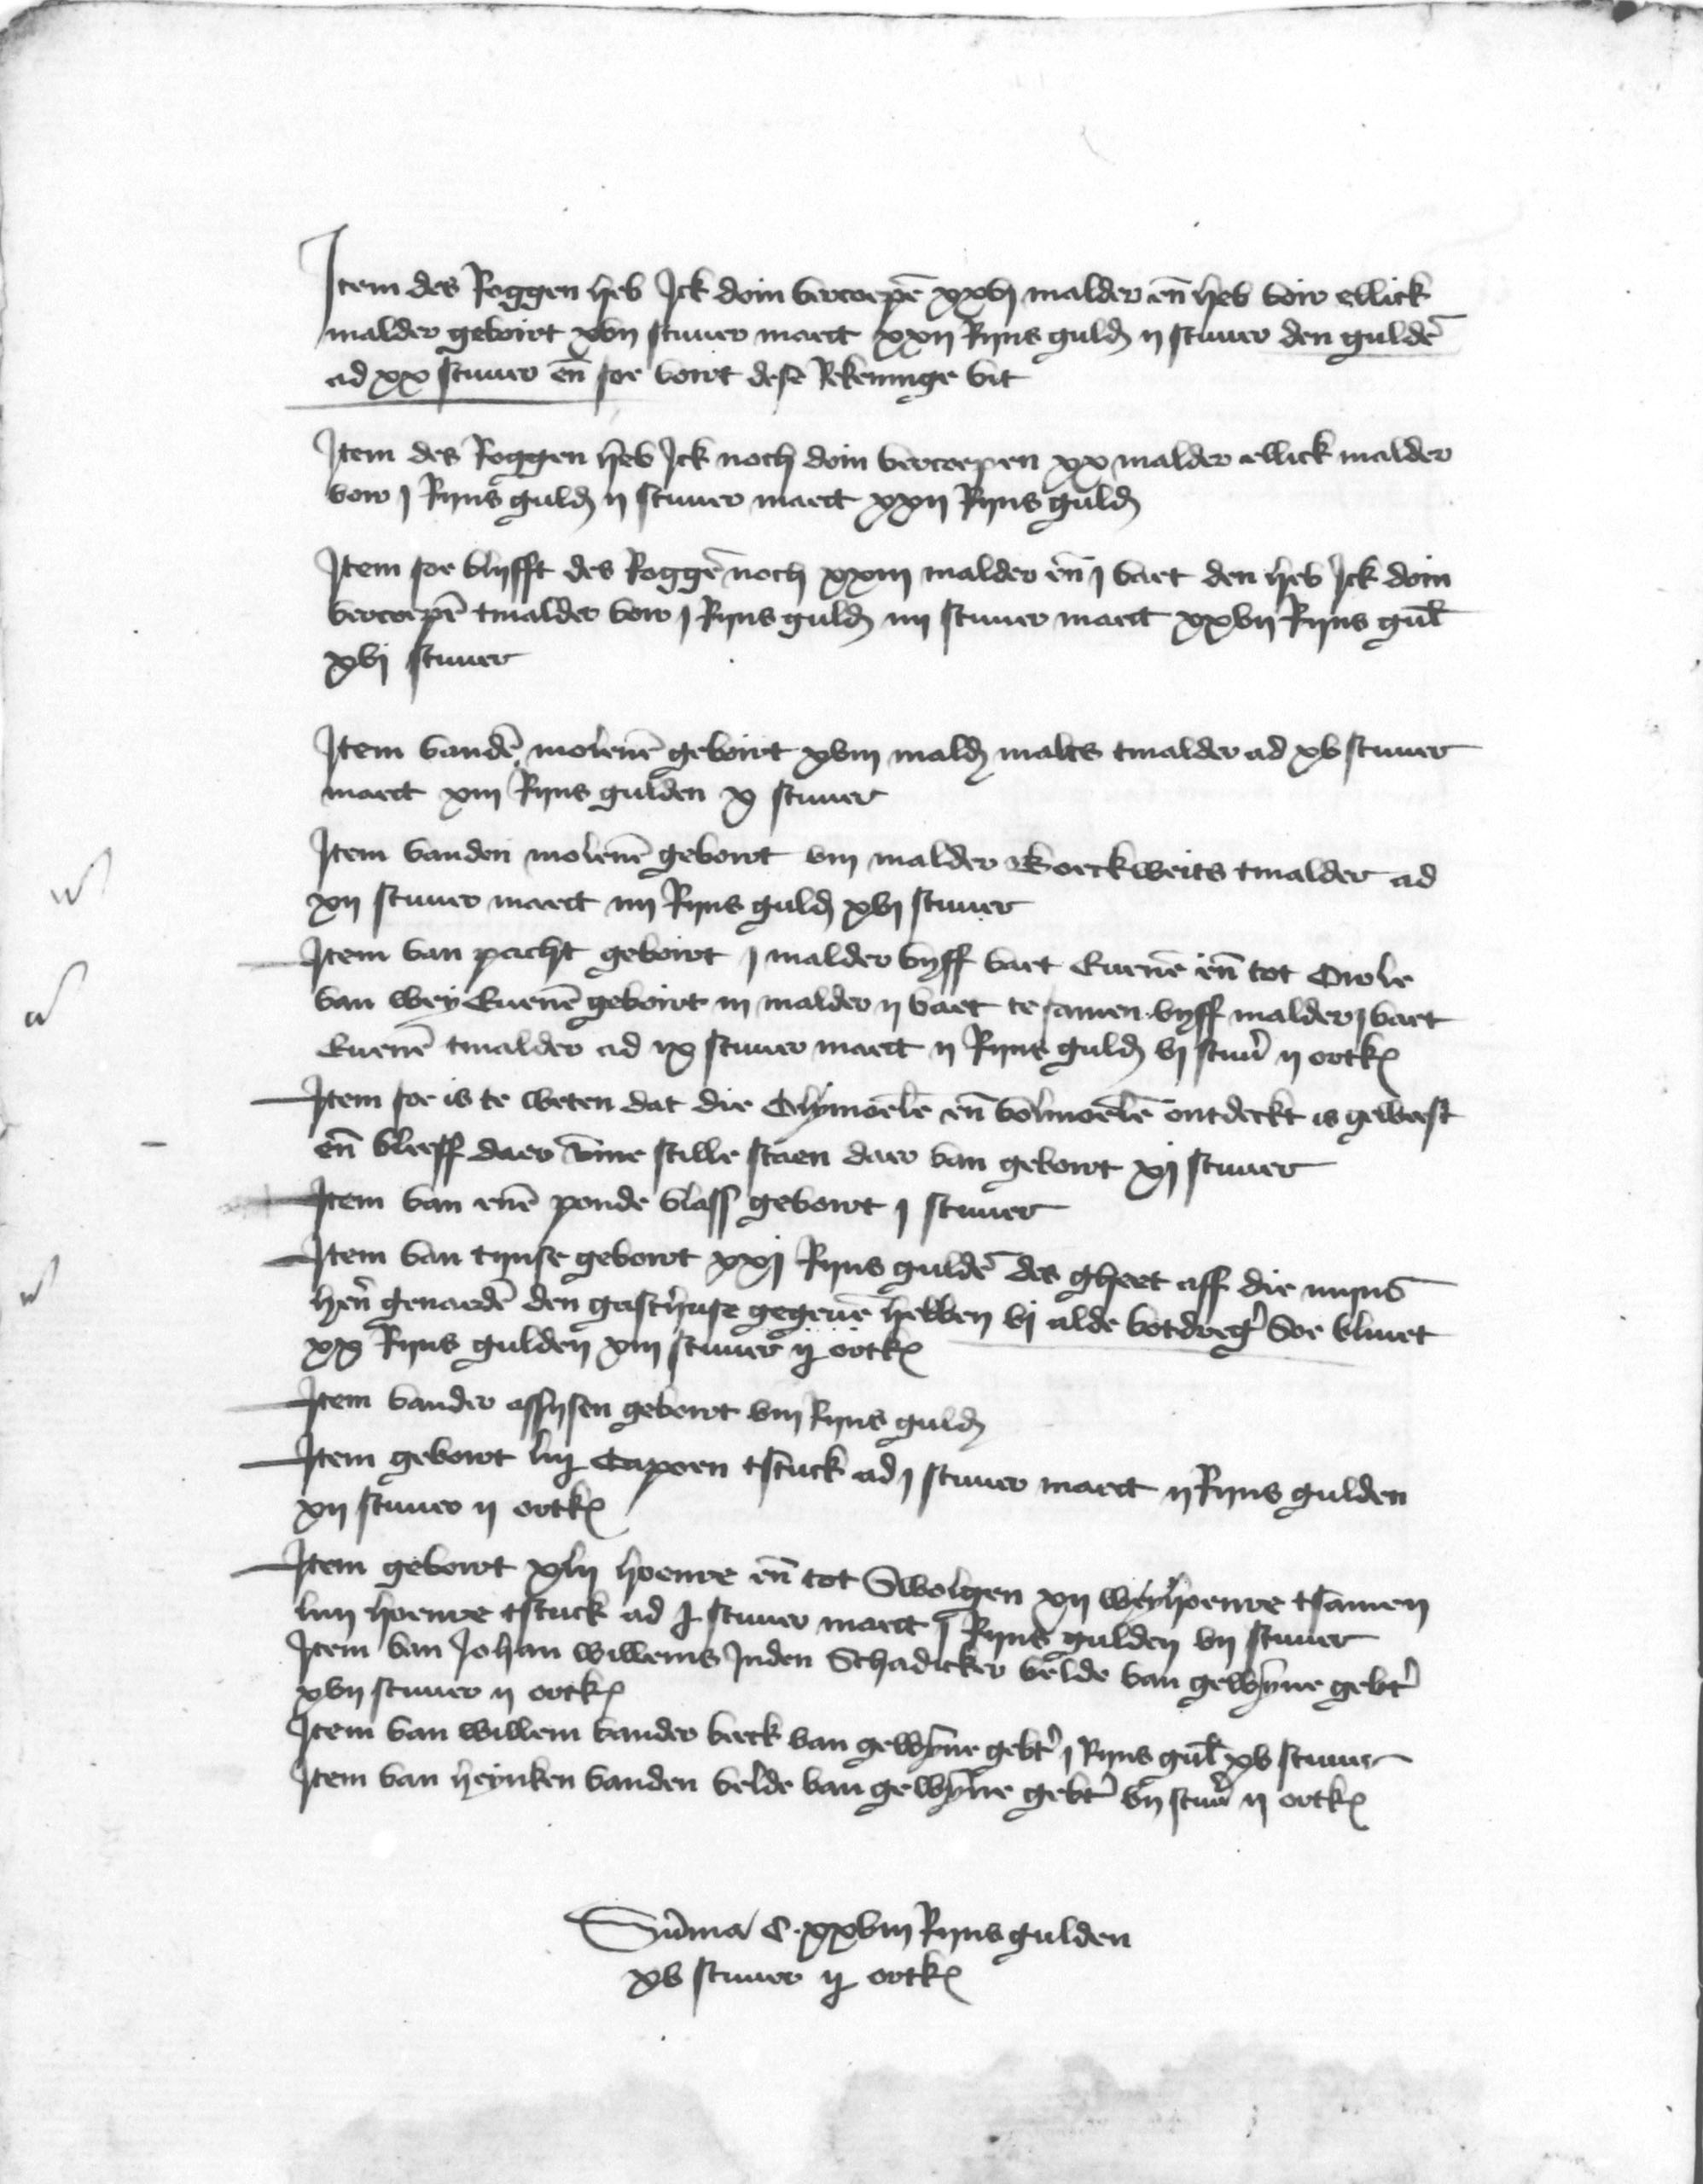 Item des Roggen heb Jck doin vercoepē xxvj malder en̄ heb voir ellick
malder geboirt xvij stuuer maect xxij Rijns guld ij stuuer den guldē
ad xx stuuer en̄ soe voirt dese Rekeninge vit
Item des Roggen heb Jck noch doin vercoepen xx malder ellick malder
voir j Rijns guld ij stuuer maect xxij Rijns guld
Item soe blijfft des Roggē noch xxiij malder en̄ j vaet den heb Jck doin
vercoepē tmalder voir j Rijns guld iiij stuuer maect xxvij Rijns gul
xvj stuuer
Item vandē molenē geboirt xviij mald malts tmalder ad xv stuuer
maect xiij Rijns gulden x stuuer
Item vanden molenē geboirt viij malder Boeckweits tmalder ad
xij stuuer maect iiij Rijns guld xvj stuuer
Item van pacht geboirt j malder vijff vaet Euenē en̄ tot Oirle
van wey Euenē geboirt iij malder ij vaet te samen vijff malder j vaet
Euenē tmalder ad ix stuuer maect ij Rijns guld vj stuu ij ortk
Item soe is te weten dat die Olymoelē en̄ volmoelē ontdeckt is geweest
en̄ bleeff daer stille staen daer van geboirt xj stuuer
Item van enē ponde vlass geboirt j stuuer
Item van tijnse geboirt xxj Rijns guldē des gheet aff die mijns
hen genaedē den gasthuse gegeuē hebben vj alde botdreg Soe bliuet
xx Rijns gulden xiij stuuer ij ortk
Item vander assijsen geboirt viij Rijns guld
Item geboirt lij Capoen tstuck ad j stuuer maect ij Rijns gulden
xij stuuer ij ortk
Item geboirt xlij hoenre en̄ tot Swolgen xij weyhoenre tsamen
liiij hoenre tstuck ad j stuuer maect j Rijns gulden vij stuuer
Item van Johan willems Jnden Schadicker velde van gewynne gebt
xvij stuuer ij ortk
Item van willem vander beeck van gewynne gebt j Rijns gul xv stuuer
Item van heynken vanden velde van gewynne gebt vij stuu ij ortk
Summa C xxviij Rijns gulden
xv stuuer ij ortk